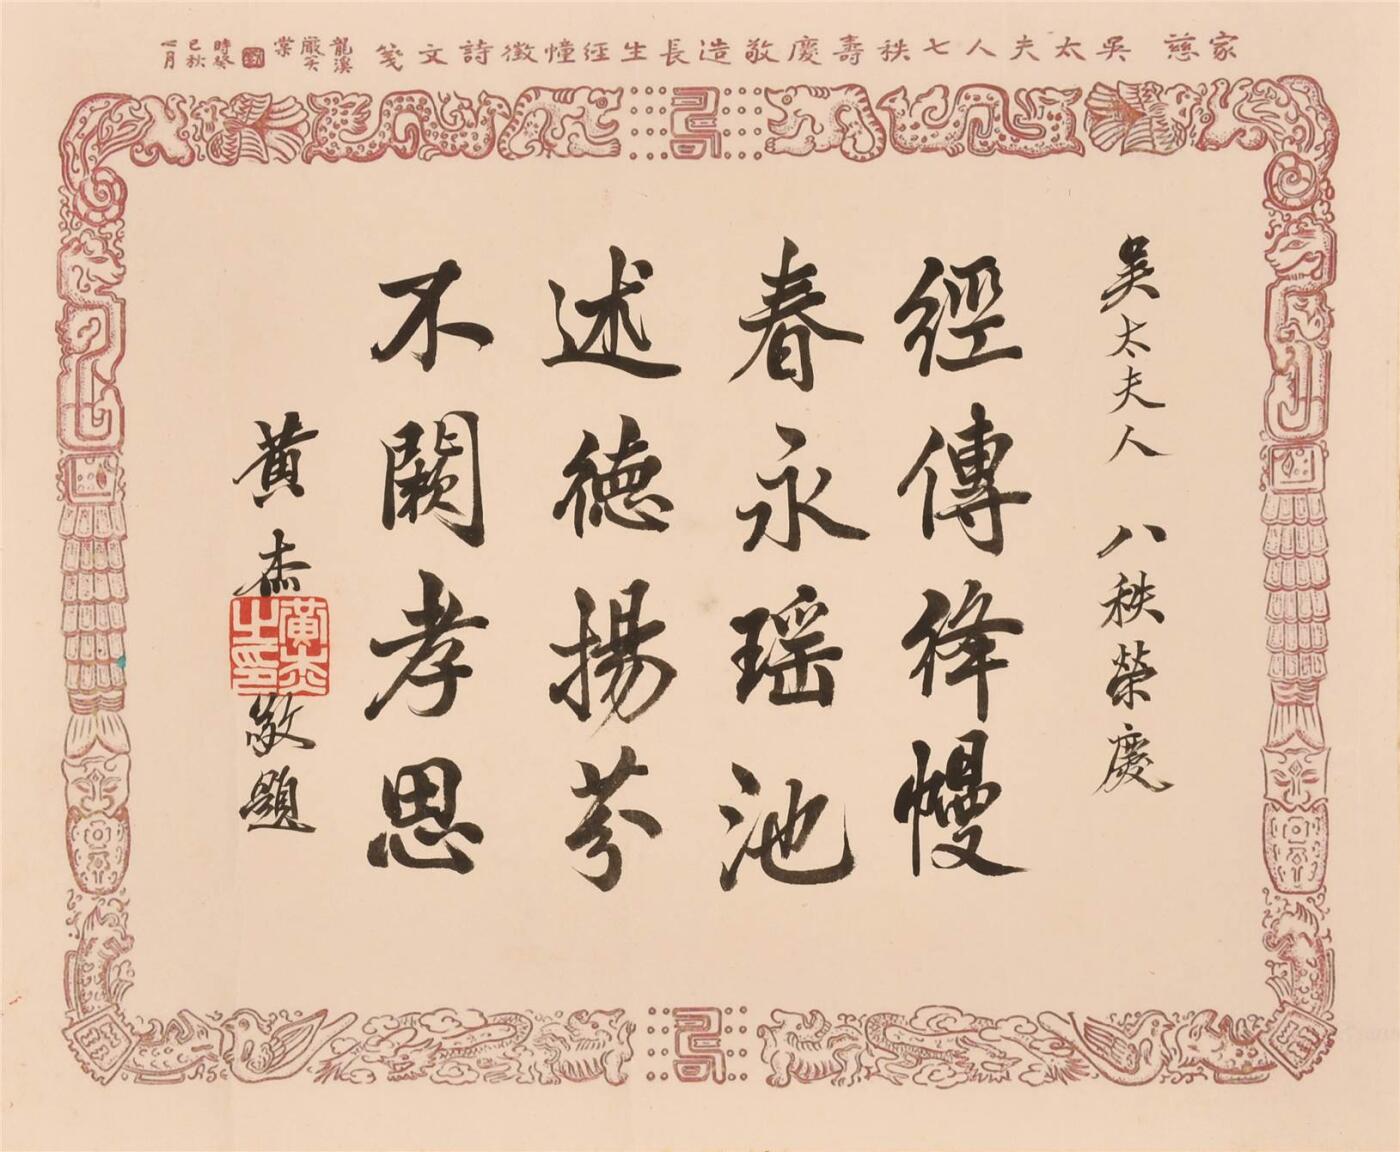 家慈 吳太夫人七秩壽慶敬造長生經幢徵詩文箋
龍溪
嚴笑
棠
時癸
巳秋
七月
吳太夫人 八秩榮慶
經傳絳幔
春永瑤池
述德揚芬
不闕孝思
黃杰敬題
黃杰之印